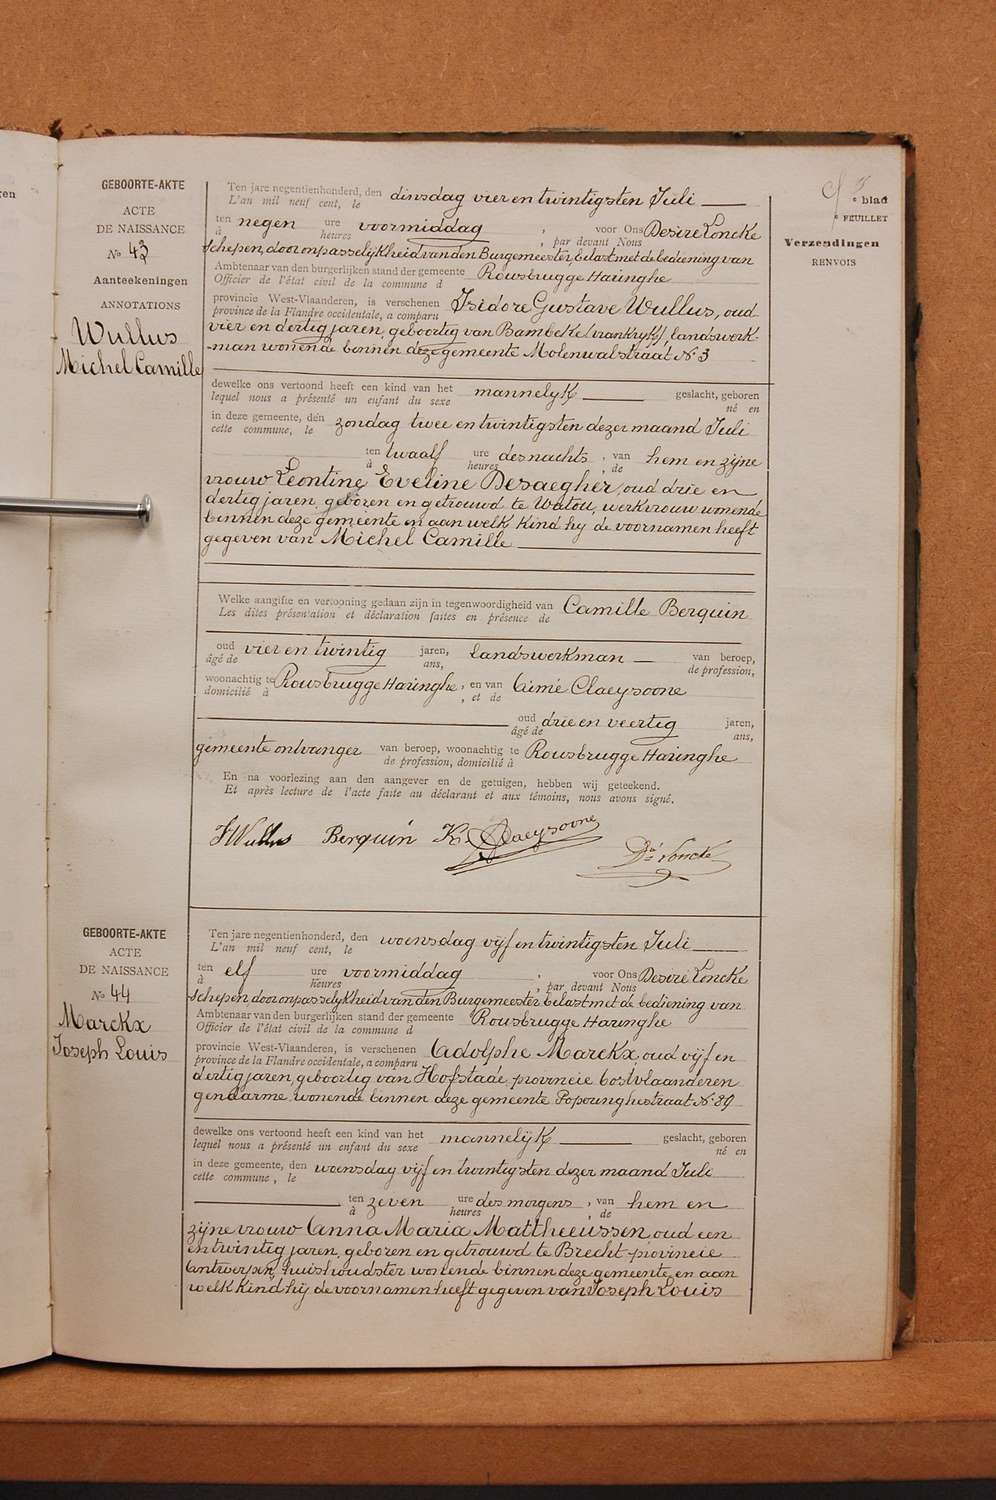 gen
GEBOORTE-AKTE
ACTE
DE NAISSANCE
No 43
Aanteekeningen
ANNOTATIONS
Wullus
Michel Camille
Ten jare negentienhonderd, den dinsdag vier en twintigsten Juli
L'an mil neuf cent, le
ten negen ure voormiddag , voor Ons Desiré Loncke
à heures , par devant Nous
schepen, door onpasselijkheid van den Burgemeester, belast met de bediening van
Ambtenaar van den burgerlijken stand der gemeente Rousbrugge Haringhe
Officier de l'état civil de la commune d
provincie West-Vlaanderen, is verschenen Isidore Gustave Wullus, oud
province de la Flandre occidentale, a comparu
vier en dertig jaren, geboortig van Bambeke (vrankryk), landswerk-
-man wonende binnen deze gemeente Molenwalstraat, No 3
dewelke ons vertoond heeft een kind van het mannelyk geslacht, geboren
lequel nous a présenté un enfant du sexe né en
in deze gemeente, den zondag twee en twintigsten dezer maand Juli
cette commune, le
ten twaalf ure des nachts , van hem en zijne
à heures , de
vrouw Leontine Eveline Desaegher, oud drie en
dertig jaren, geboren en getrouwd te Watou, werkvrouw wonende
binnen deze gemeente en aan welk kind hy de voornamen heeft
gegeven van Michel Camille
Welke aangifte en vertooning gedaan zijn in tegenwoordigheid van Camille Berquin
Les dites présentation et déclaration faites en présence de
oud vier en twintig jaren, landswerkman van beroep,
âgé de ans, de profession,
woonachtig te Rousbrugge Haringhe , en van Aimé Claeysoone
domicilié à , et de
oud drie en veertig jaren,
âgé de ans,
gemeente ontvanger van beroep, woonachtig te Rousbrugge Haringhe
de profession, domicilié à
En na voorlezing aan den aangever en de getuigen, hebben wij geteekend.
Et après lecture de l'acte faite au déclarant et aux témoins, nous avons signé.
Wullus Berquin K. Claeysoone
Dé Loncke
GEBOORTE-AKTE
ACTE
DE NAISSANCE
No 44
Marckx
Joseph Louis
Ten jare negentienhonderd, den woensdag vijf en twintigsten Juli
L'an mil neuf cent, le
ten elf ure voormiddag , voor Ons Desiré Loncke
à heures , par devant Nous
schepen door onpasselykheid van den Burgemeester belast met de bediening van
Ambtenaar van den burgerlijken stand der gemeente Rousbrugge Haringhe
Officier de l'état civil de la commune d
provincie West-Vlaanderen, is verschenen Adolphe Marckx oud vijf en
province de la Flandre occidentale, a comparu
dertig jaren, geboortig van Hofstade, provincie Oostvlaanderen
gendarme, wonende binnen deze gemeente Poperinghestraat No 89
dewelke ons vertoond heeft een kind van het mannelijk geslacht, geboren
lequel nous a présenté un enfant du sexe né en
in deze gemeente, den woensdag vijf en twintigsten dezer maand Juli
cette commune, le
ten zeven ure des morgens , van hem en
à heures , de
zijne vrouw Anna Maria Mattheeussen, oud een
en twintig jaren, geboren en getrouwd te Brecht provincie
Antwerpen, huishoudster wonende binnen deze gemeente, en aan
welk kind hij de voornamen heeft gegeven van Joseph Louis
e blad
e FEUILLET
Verzendingen
RENVOIS